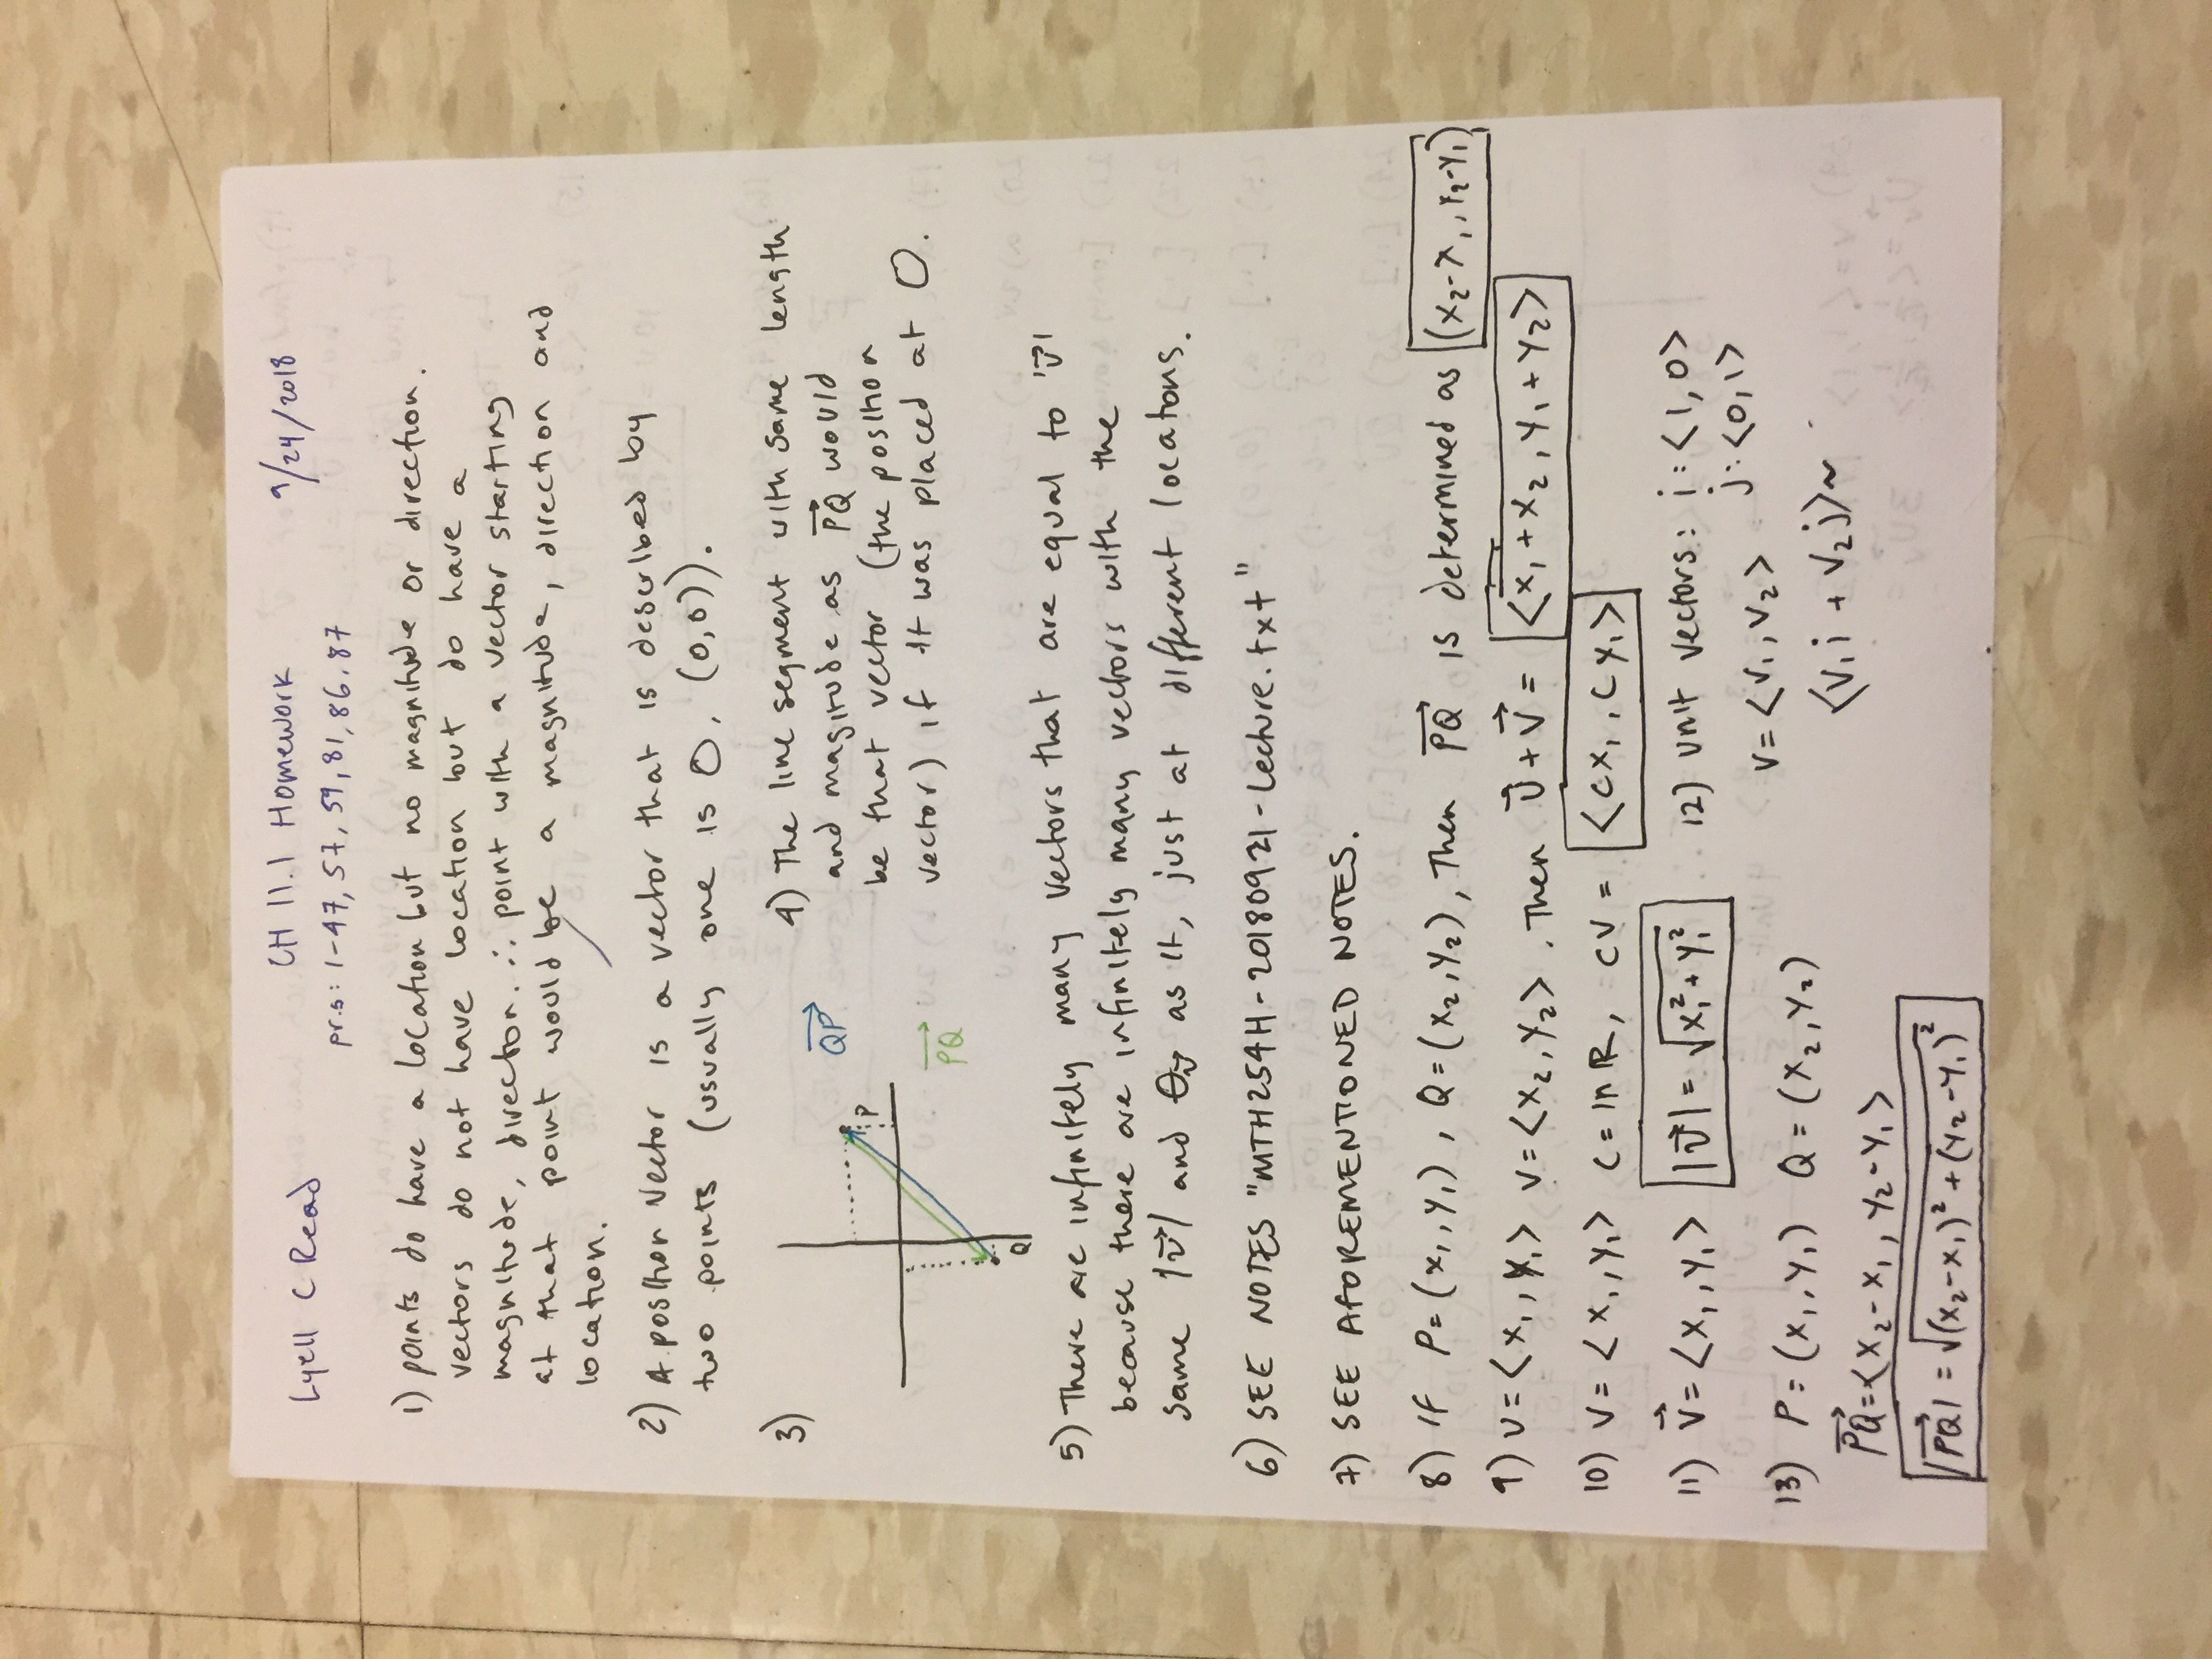 Lyell C Read
CH 11.1 Homework
9/24/2018
pr.s: 1-47, 57, 59, 81, 86, 87
1) points do have a location but no magnitude or direction.
vectors do not have location but do have a
magnitude, direction. ∴ point with a vector starting
at that point would be a magnitude, direction and
location.
2) A position vector is a vector that is described by
two points (usually one is O, (0,0)).
3)
QP→
P
PQ→
Q
4) The line segment with same length
and magitude as PQ→ would
be that vector (the position
vector) if it was placed at O.
5) There are infinitely many vectors that are equal to 'v→'
because there are infinitely many vectors with the
same |v→| and θv→ as it, just at different locatons.
6) SEE NOTES "MTH254H-20180921-Lecture.txt"
7) SEE AFOREMENTIONED NOTES.
8) If P=(x₁,y₁), Q=(x₂,y₂), Then PQ→ is determined as (x₂-x₁,y₂-y₁)
9) u=<x₁,y₁> v=<x₂,y₂>. Then u→+v→= <x₁+x₂,y₁+y₂>
10) v=<x₁,y₁> c=in ℝ, cv = <cx₁,cy₁>
11) v→=<x₁,y₁> |v→|=√x₁²+y₁²
12) unit vectors: i:<1,0>
j:<0,1>
v=<v₁,v₂>
<v₁i + v₂j>~
13) P=(x₁,y₁) Q=(x₂,y₂)
PQ→=<x₂-x₁,y₂-y₁>
|PQ→| = √(x₂-x₁)²+(y₂-y₁)²